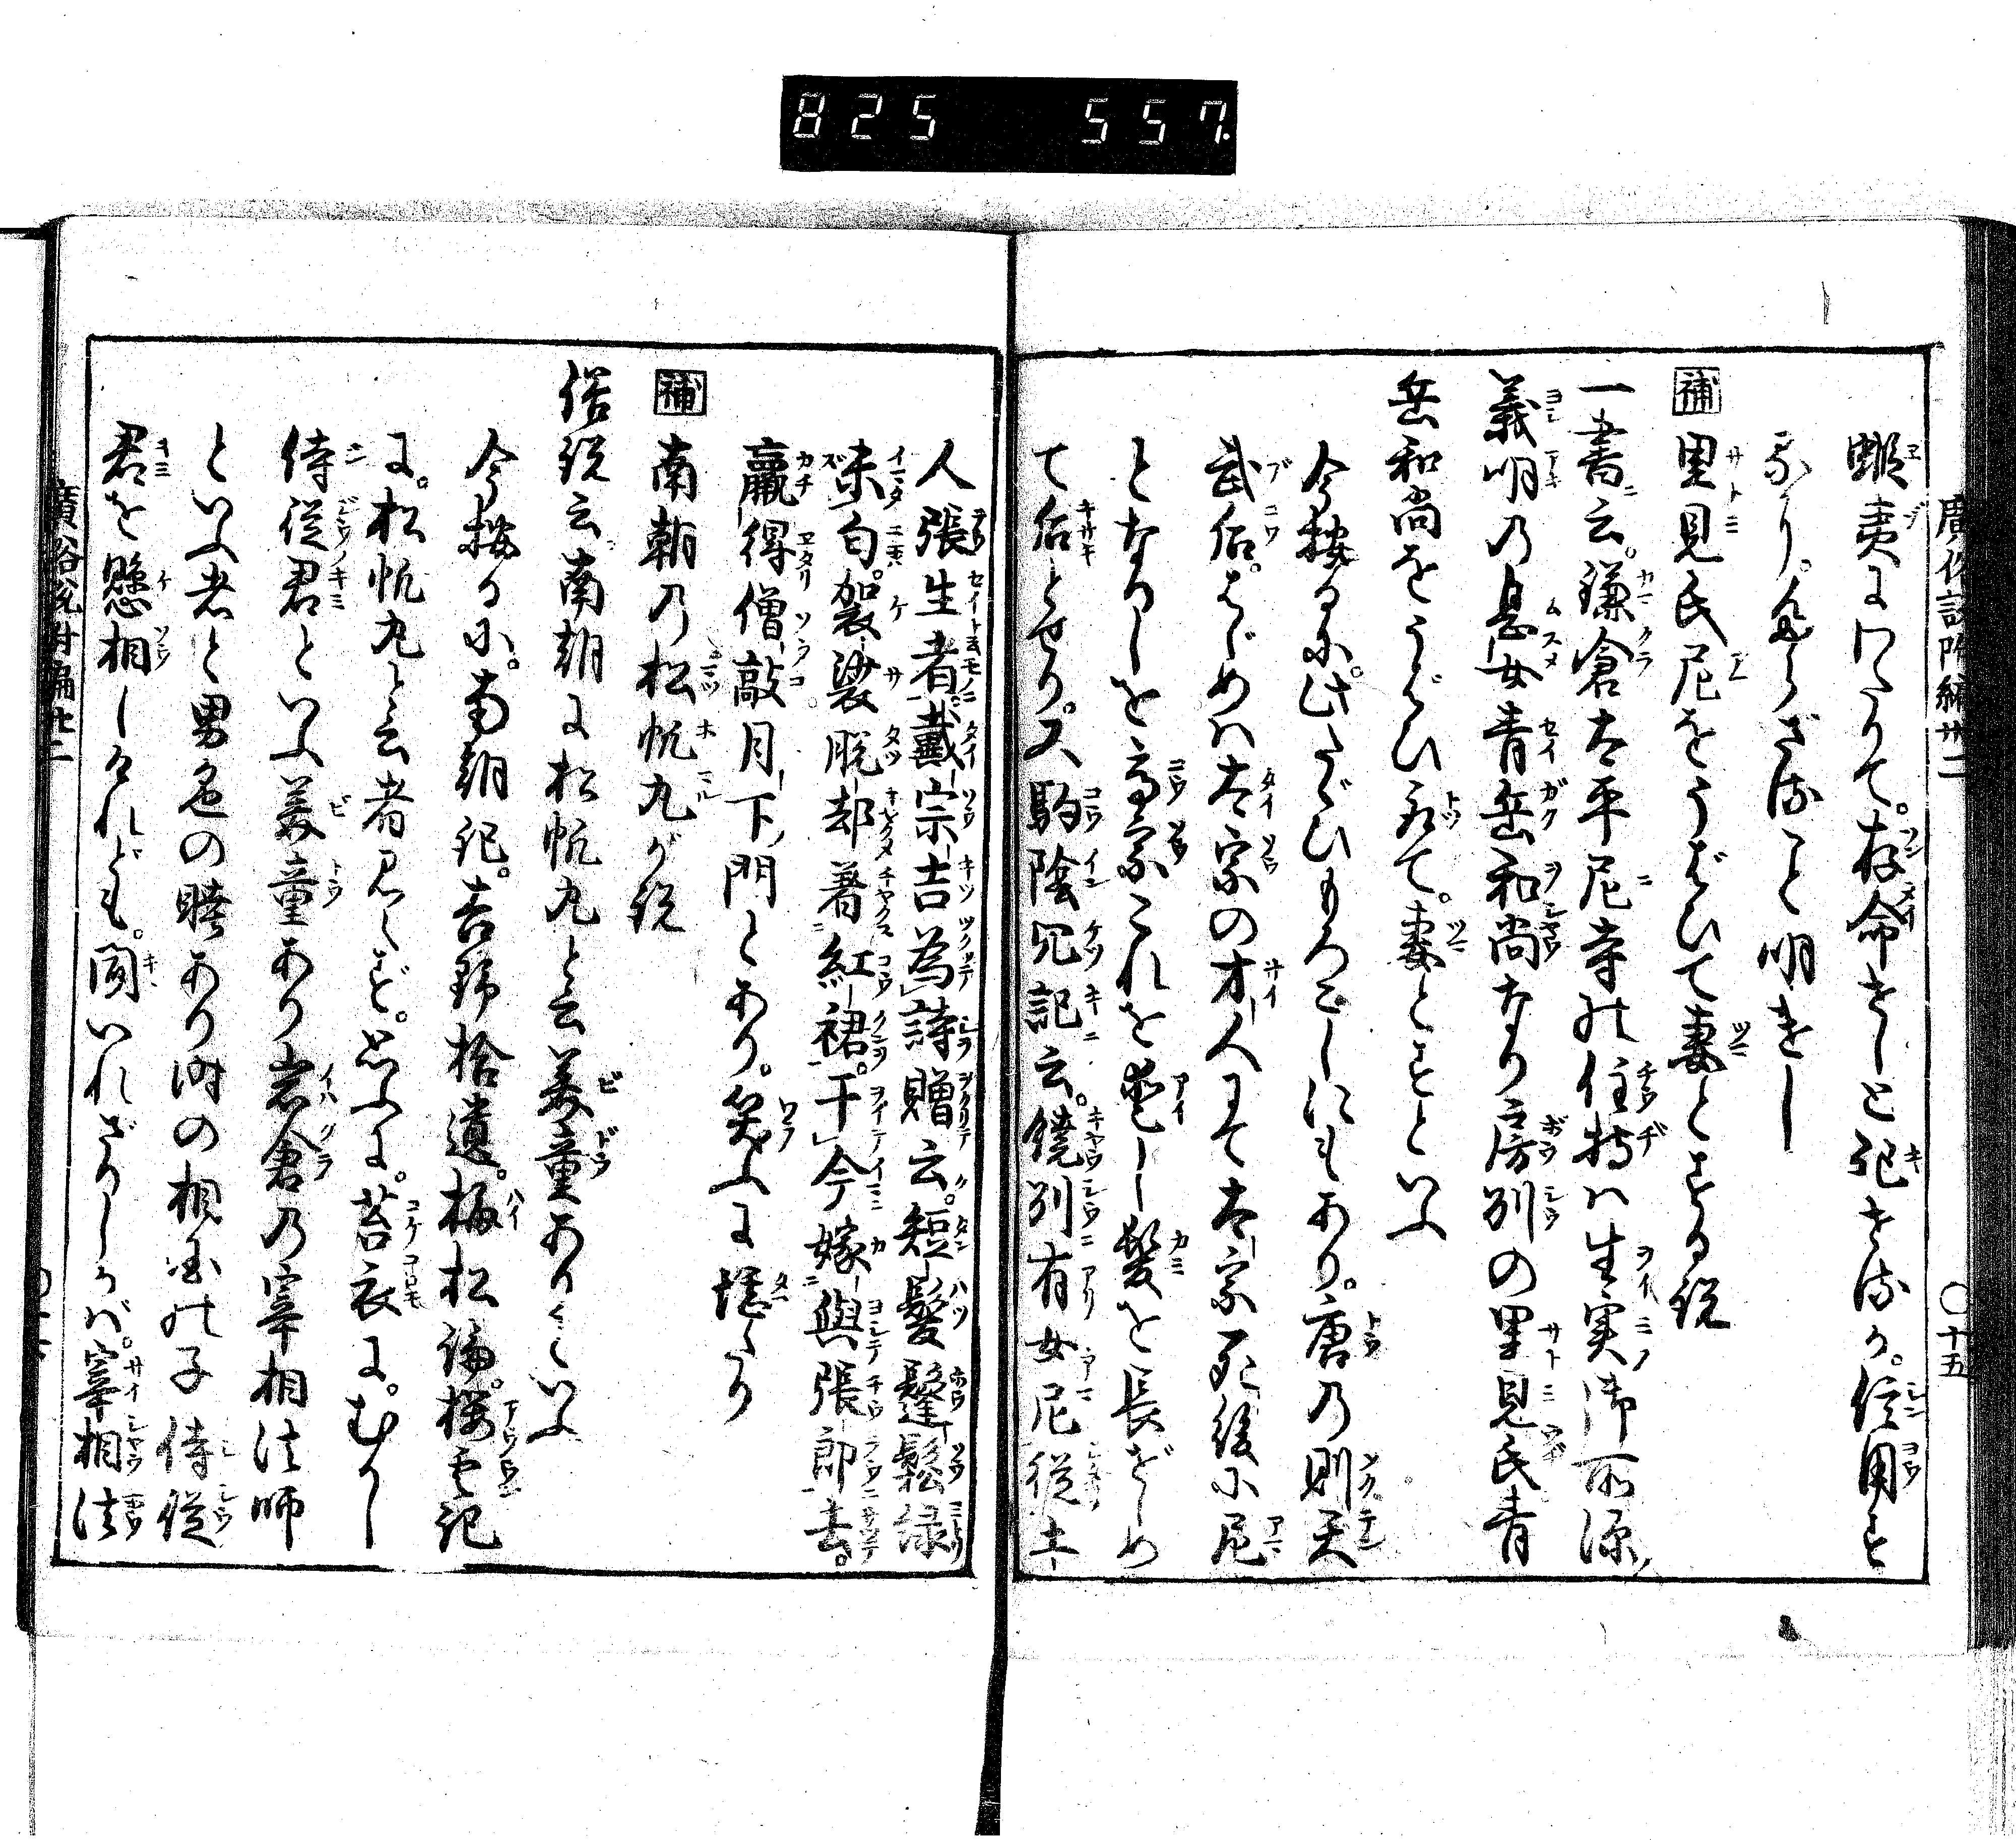 825 557.
廣俗説附編卅二 〇十五
蝦夷にわたりて。存命せしと記せるか。信用す
るにたらざること明けし
補 里見氏尼をうばひて妻とする説
一書云。鎌倉太平尼寺の住持は生実御所源
義明の息女青岳和尚なり房州の里見氏青
岳和尚をうばひ取て。妻とすといふ
今按るに。此たぐひもろこしにもあり。唐の則天
武后。はじめハ太宗の才人にて太宗死後に尼
となりしを高宗これを愛し髪を長ぜしめ
て后とせり。又駒陰冗記云。饒州有女尼従士
人張生者。戴宗吉為詩贈云。短髪鬔鬆緑
未匀。袈裟脱却著紅裙。于今嫁與張郎去。
贏得僧敲月下門とあり。笑ふに堪たり
補 南朝の松帆丸が説
俗説云南朝に松帆丸と云美童ありといふ
今按るに。南朝記。吉野拾遺。梅松論。桜雲記
に。松帆丸と云者見へず。思ふに。苔衣に。むかし
侍従君といふ美童あり岩倉の宰相法師
といふ者と男色の睦あり時の相国の子侍従
君を懸相しけれども。聞いれざりしかば。宰相法
廣俗説附編卅二